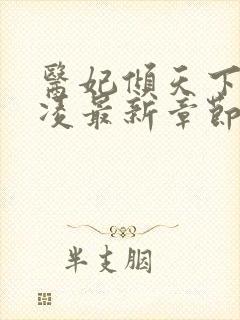 醫妃傾天下
凌最新章節
半支胭